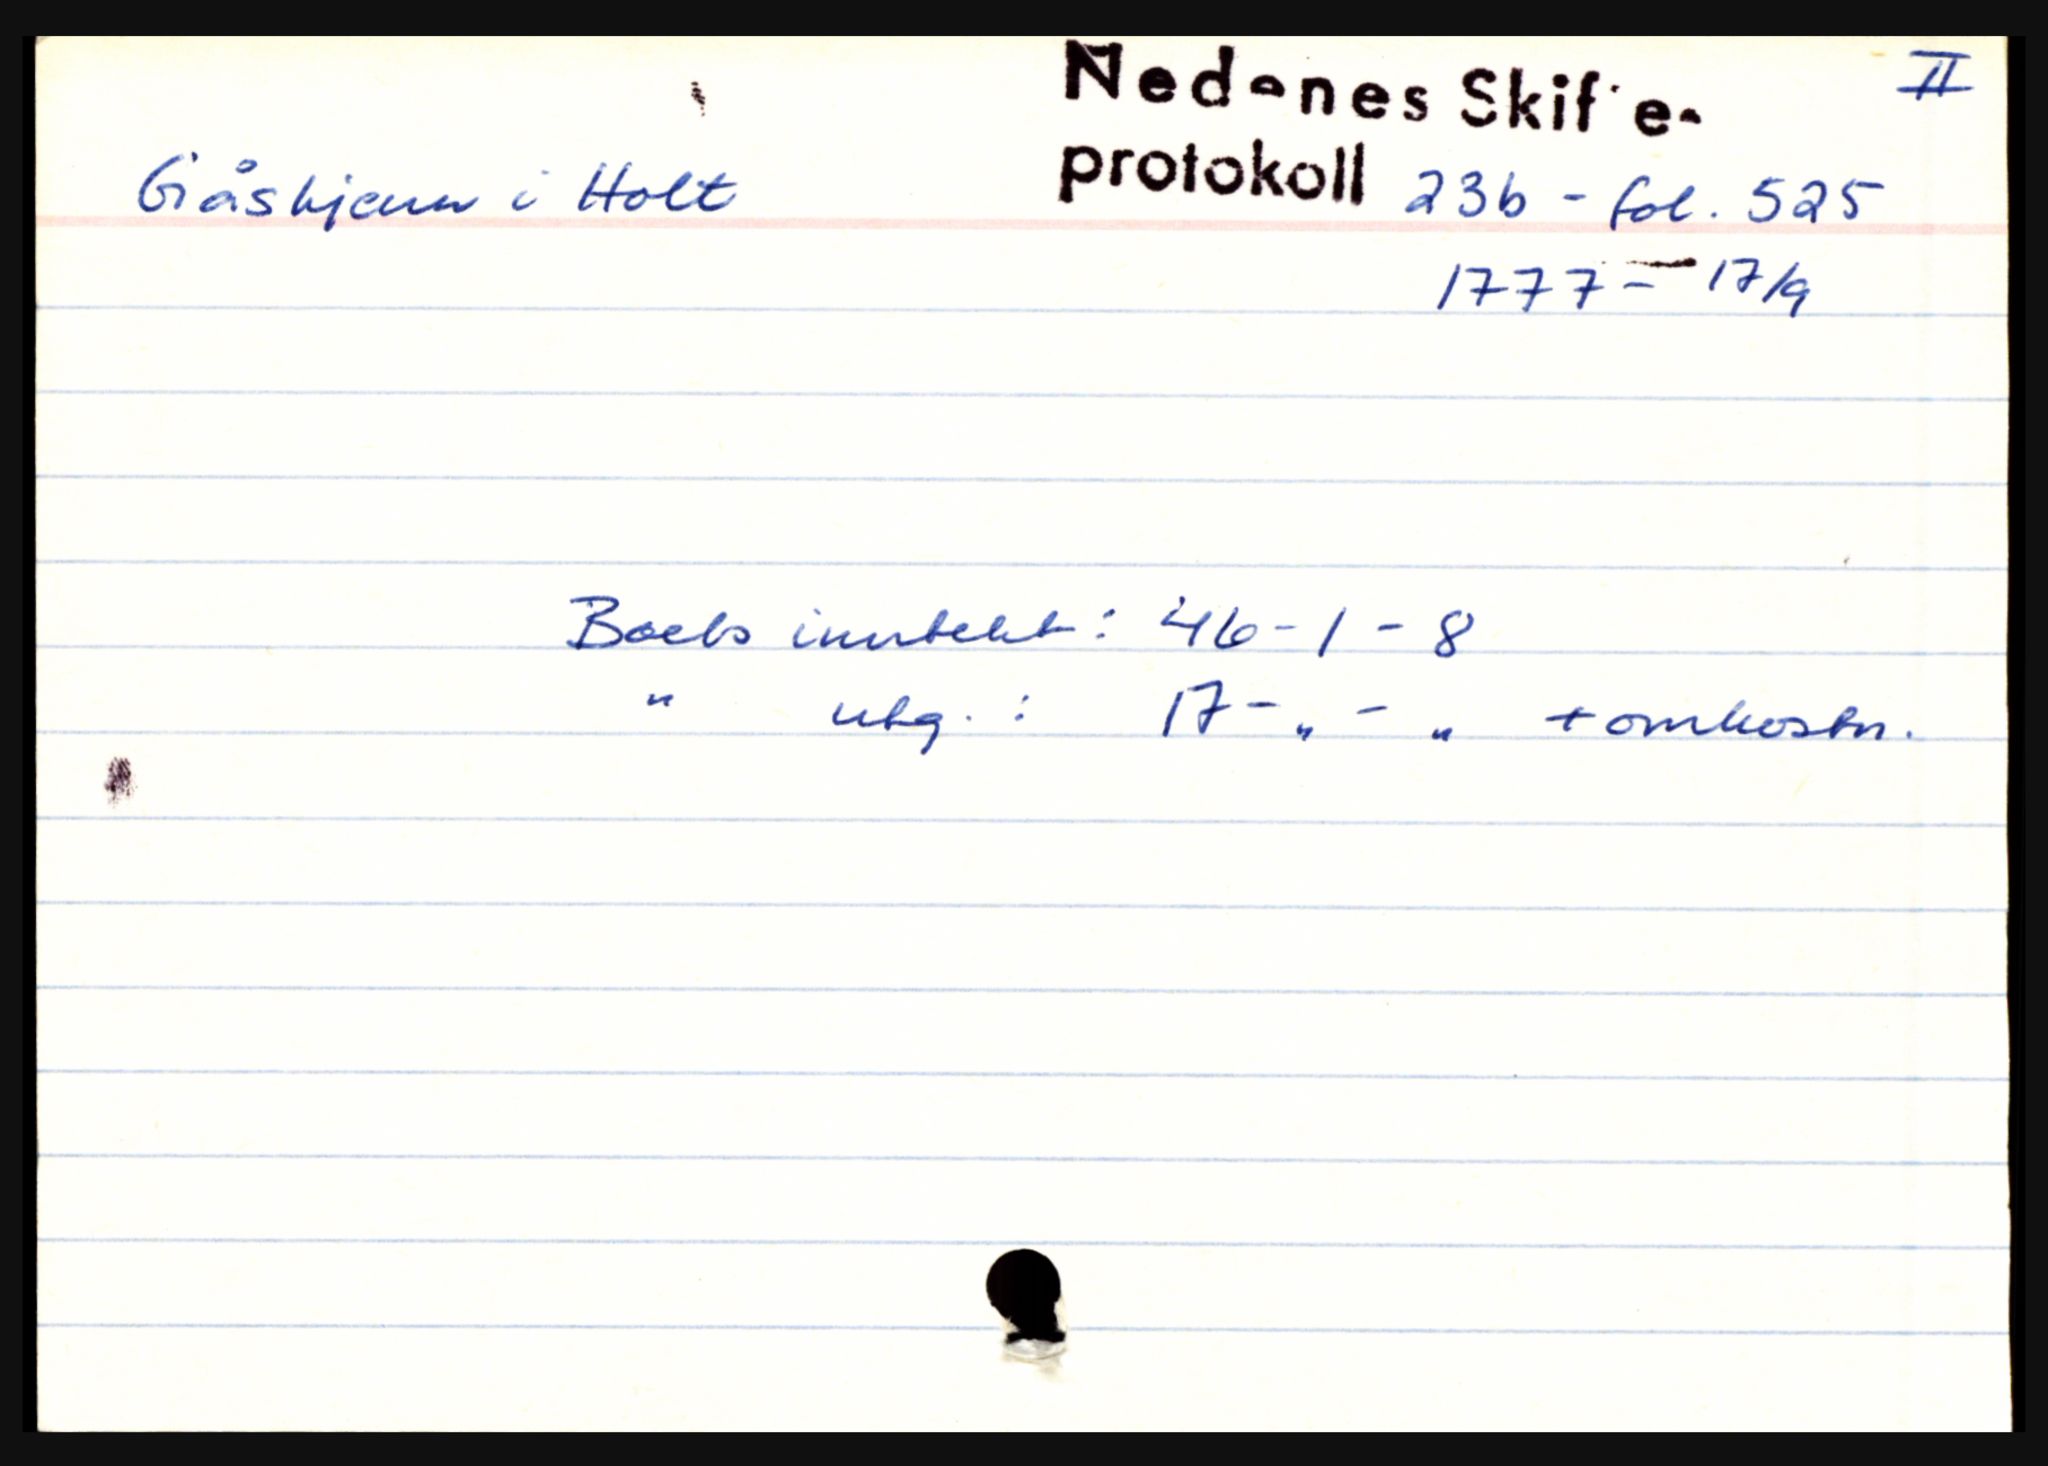 II
Nedenes Skifte-
protokoll 23b - fol. 525
Gåskjenn i Holt
1777 - 17/9
Boets inntekt: 46 - 1 - 8
" utg. : 17 - " - " + omkostn.